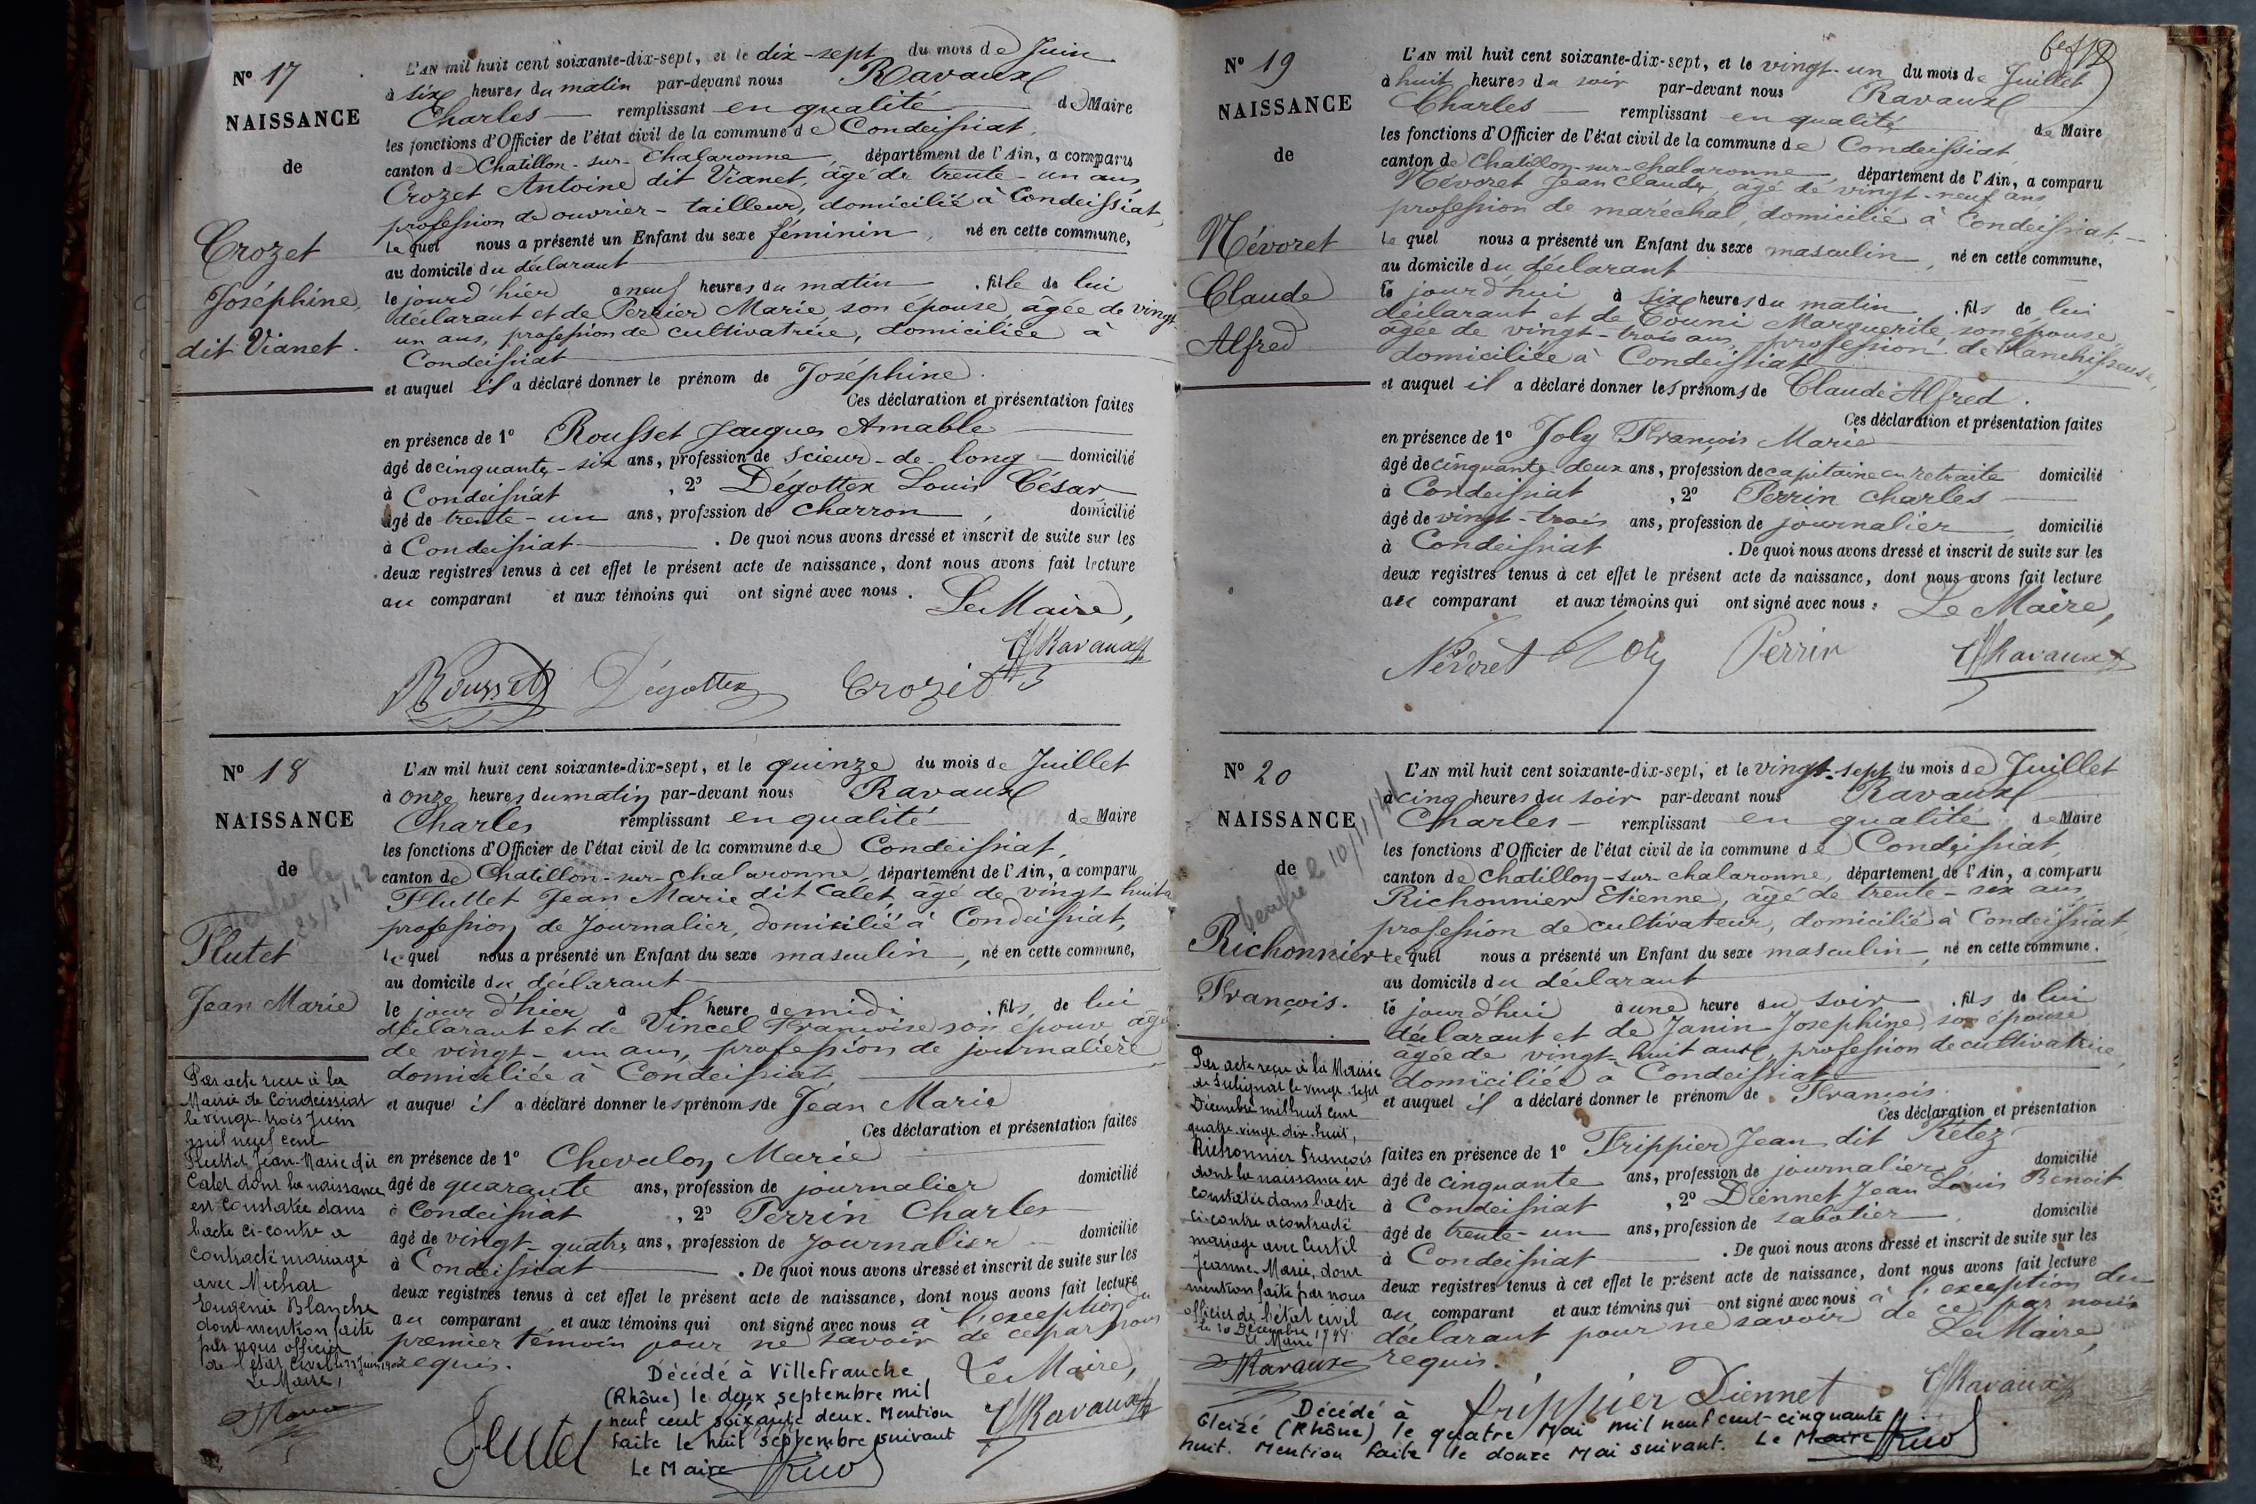 Nº 17
NAISSANCE
de
Crozet
Joséphine,
dit Vianet.
L'AN mil huit cent soixante-dix-sept, et le dix-sept du mois de Juin
à six heures du matin par-devant nous Ravaux
Charles — remplissant en qualité de Maire
les fonctions d'Officier de l'état civil de la commune de Condeissiat,
canton de Chatillon-sur-Chalaronne, département de l'Ain, a comparu
Crozet Antoine dit Vianet, âgé de trente-un ans,
profession de ouvrier-tailleur, domicilié à Condeissiat,
lequel nous a présenté un Enfant du sexe féminin, né en cette commune,
au domicile du déclarant
le jour d'hier à neuf heures du matin, fille de lui
déclarant et de Perrier Marie son épouse, âgée de vingt
un ans, profession de cultivatrice, domiciliée à
Condeissiat
et auquel il a déclaré donner le prénom de Joséphine.
Ces déclaration et présentation faites
en présence de 1º Rousset Jacques Amable
âgé de cinquante-six ans, profession de scieur-de-long domicilié
à Condeissiat, 2º Dégottex Louis César
âgé de trente-un ans, profession de charron, domicilié
à Condeissiat. De quoi nous avons dressé et inscrit de suite sur les
deux registres tenus à cet effet le présent acte de naissance, dont nous avons fait lecture
au comparant et aux témoins qui ont signé avec nous. Le Maire,
Ravaux
Rousset Dégottex Crozet
Nº 18
NAISSANCE
de
Flutet
Jean Marie
L'AN mil huit cent soixante-dix-sept, et le quinze du mois de Juillet
à onze heures du matin par-devant nous Ravaux
Charles remplissant en qualité de Maire
les fonctions d'Officier de l'état civil de la commune de Condeissiat,
canton de Chatillon-sur-chalaronne, département de l'Ain, a comparu
Fluttet Jean Marie dit Calet, âgé de vingt-huit
profession de Journalier, domicilié à Condeissiat,
lequel nous a présenté un Enfant du sexe masculin, né en cette commune,
au domicile du déclarant
le jour d'hier à l'heure de midi, fils de lui
déclarant et de Vincel Françoise son épouse âgée
de vingt-un ans, profession de journalière
domiciliée à Condeissiat,
et auquel il a déclaré donner les prénoms de Jean Marie
Ces déclaration et présentation faites
en présence de 1º Chevalon Marie
âgé de quarante ans, profession de journalier domicilié
à Condeissiat, 2º Perrin Charles
âgé de vingt-quatre ans, profession de journalier domicilié
à Condeissiat. De quoi nous avons dressé et inscrit de suite sur les
deux registres tenus à cet effet le présent acte de naissance, dont nous avons fait lecture
au comparant et aux témoins qui ont signé avec nous à l'exception du
premier témoin pour ne savoir de ce par nous
requis.
Le Maire,
Ravaux
Par acte reçu à la
Mairie de Condeissiat
le vingt trois Juin
mil neuf cent
Fluttet Jean-Marie dit
Calet dont la naissance
est constatée dans
l'acte ci-contre a
contracté mariage
avec Michat
Eugénie Blanche
dont mention faite
par nous officier
de l'état civil le 23 Juin
Le Maire,
Décédé à Villefranche
(Rhône) le deux septembre mil
neuf cent soixante deux. Mention
faite le huit septembre suivant
Le Maire
Nº 19
NAISSANCE
de
Névoret
Claude
Alfred
L'AN mil huit cent soixante-dix-sept, et le vingt-un du mois de Juillet
à huit heures du soir par-devant nous Ravaux
Charles remplissant en qualité de Maire
les fonctions d'Officier de l'état civil de la commune de Condeissiat
canton de Chatillon-sur-chalaronne, département de l'Ain, a comparu
Névoret Jean Claude, âgé de vingt-neuf ans
profession de maréchal, domicilié à Condeissiat,
lequel nous a présenté un Enfant du sexe masculin, né en cette commune,
au domicile du déclarant
le jourd'hui à six heures du matin, fils de lui
déclarant et de Touni Marguerite son épouse,
âgée de vingt-trois ans, profession de blanchisseuse,
domiciliée à Condeissiat
et auquel il a déclaré donner les prénoms de Claude Alfred.
Ces déclaration et présentation faites
en présence de 1º Joly François Marie
âgé de cinquante deux ans, profession de capitaine en retraite domicilié
à Condeissiat, 2º Perrin Charles
âgé de vingt-trois ans, profession de journalier domicilié
à Condeissiat. De quoi nous avons dressé et inscrit de suite sur les
deux registres tenus à cet effet le présent acte de naissance, dont nous avons fait lecture
au comparant et aux témoins qui ont signé avec nous. Le Maire,
Névoret Joly Perrin Ravaux
Nº 20
NAISSANCE
de
Richonnier
François.
L'AN mil huit cent soixante-dix-sept, et le vingt-sept du mois de Juillet
à cinq heures du soir par-devant nous Ravaux
Charles — remplissant en qualité de Maire
les fonctions d'Officier de l'état civil de la commune de Condeissiat,
canton de Chatillon-sur-chalaronne, département de l'Ain, a comparu
Richonnier Etienne, âgé de trente-six ans,
profession de cultivateur, domicilié à Condeissiat
lequel nous a présenté un Enfant du sexe masculin, né en cette commune.
au domicile du déclarant
le jourd'hui à une heure du soir, fils de lui
déclarant et de Janin Josephine son épouse
âgée de vingt-huit ans, profession de cultivatrice
domiciliée à Condeissiat
et auquel il a déclaré donner le prénom de François.
Ces déclaration et présentation
faites en présence de 1º Frippier Jean dit Retez
âgé de cinquante ans, profession de journalier domicilié
à Condeissiat, 2º Diennet Jean Louis Benoit
âgé de trente-un ans, profession de sabotier, domicilié
à Condeissiat. De quoi nous avons dressé et inscrit de suite sur les
deux registres tenus à cet effet le présent acte de naissance, dont nous avons fait lecture
au comparant et aux témoins qui ont signé avec nous à l'exception du
déclarant pour ne savoir de ce par nous
requis.
Le Maire,
frippier Diennet Ravaux
Par acte reçu à la Mairie
de Sulignat le vingt-sept
Décembre mil huit cent
quatre-vingt-dix-huit,
Richonnier François
dont la naissance est
constatée dans l'acte
ci-contre a contracté
mariage avec Curtil
Jeanne-Marie, dont
mention faite par nous
officier de l'état civil
le 30 Décembre
Le Maire
Ravaux
Décédé à
Gleizé (Rhône) le quatre Mai mil neuf cent-cinquante
huit. Mention faite le douze Mai suivant. Le Maire